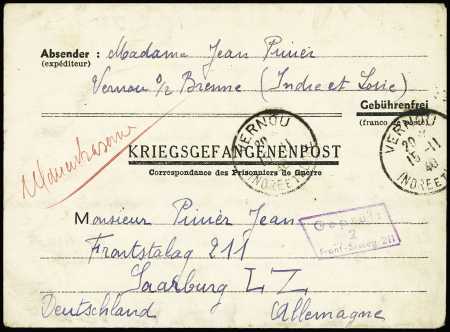 Absender : Madame Jean Pinier
(expéditeur)
Vernou s/ Brenne (Indre et Loire)
Gebührenfrei
(franco de port)
VERNOU
20
15 -11
40
INDRE ET L
VERNOU
20
15 -11
40
INDRE ET L
KRIEGSGEFANGENENPOST
Correspondance des Prisonniers de Guerre
Monsieur Pinier Jean
Geprüft
2
Front-Stalag 211
Frontstalag 211
Saarburg LZ
Deutschland Allemagne